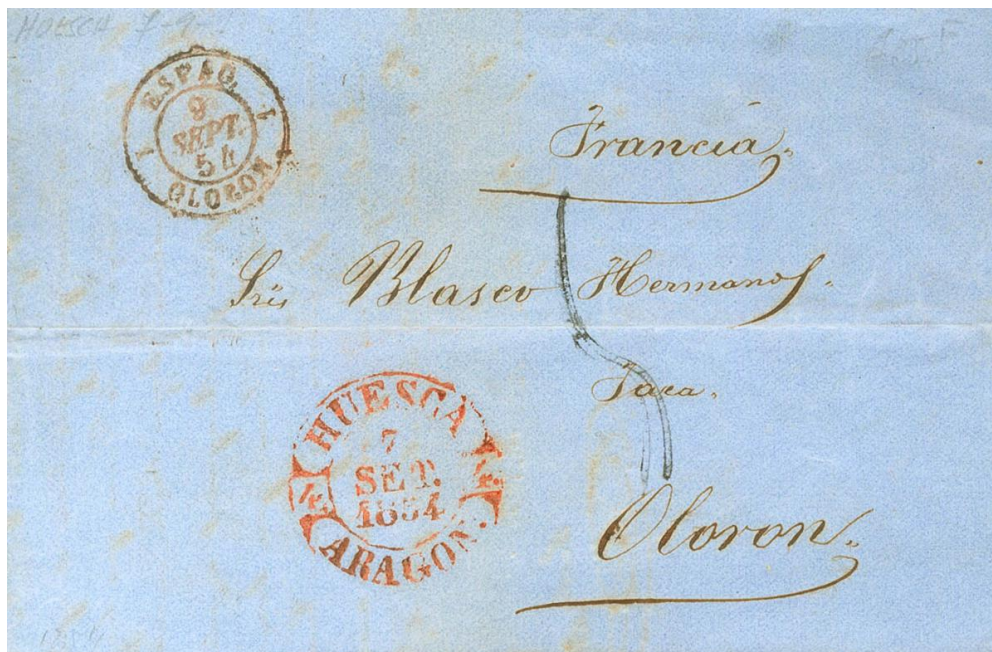 HUESCA 7-9-
ESPAG.
1 1
SEPT.
54
OLORON
Francia.
Sres Blasco Hermanos.
5
Jaca.
HUESCA
7
SET.
1854
ARAGON.
Oloron.